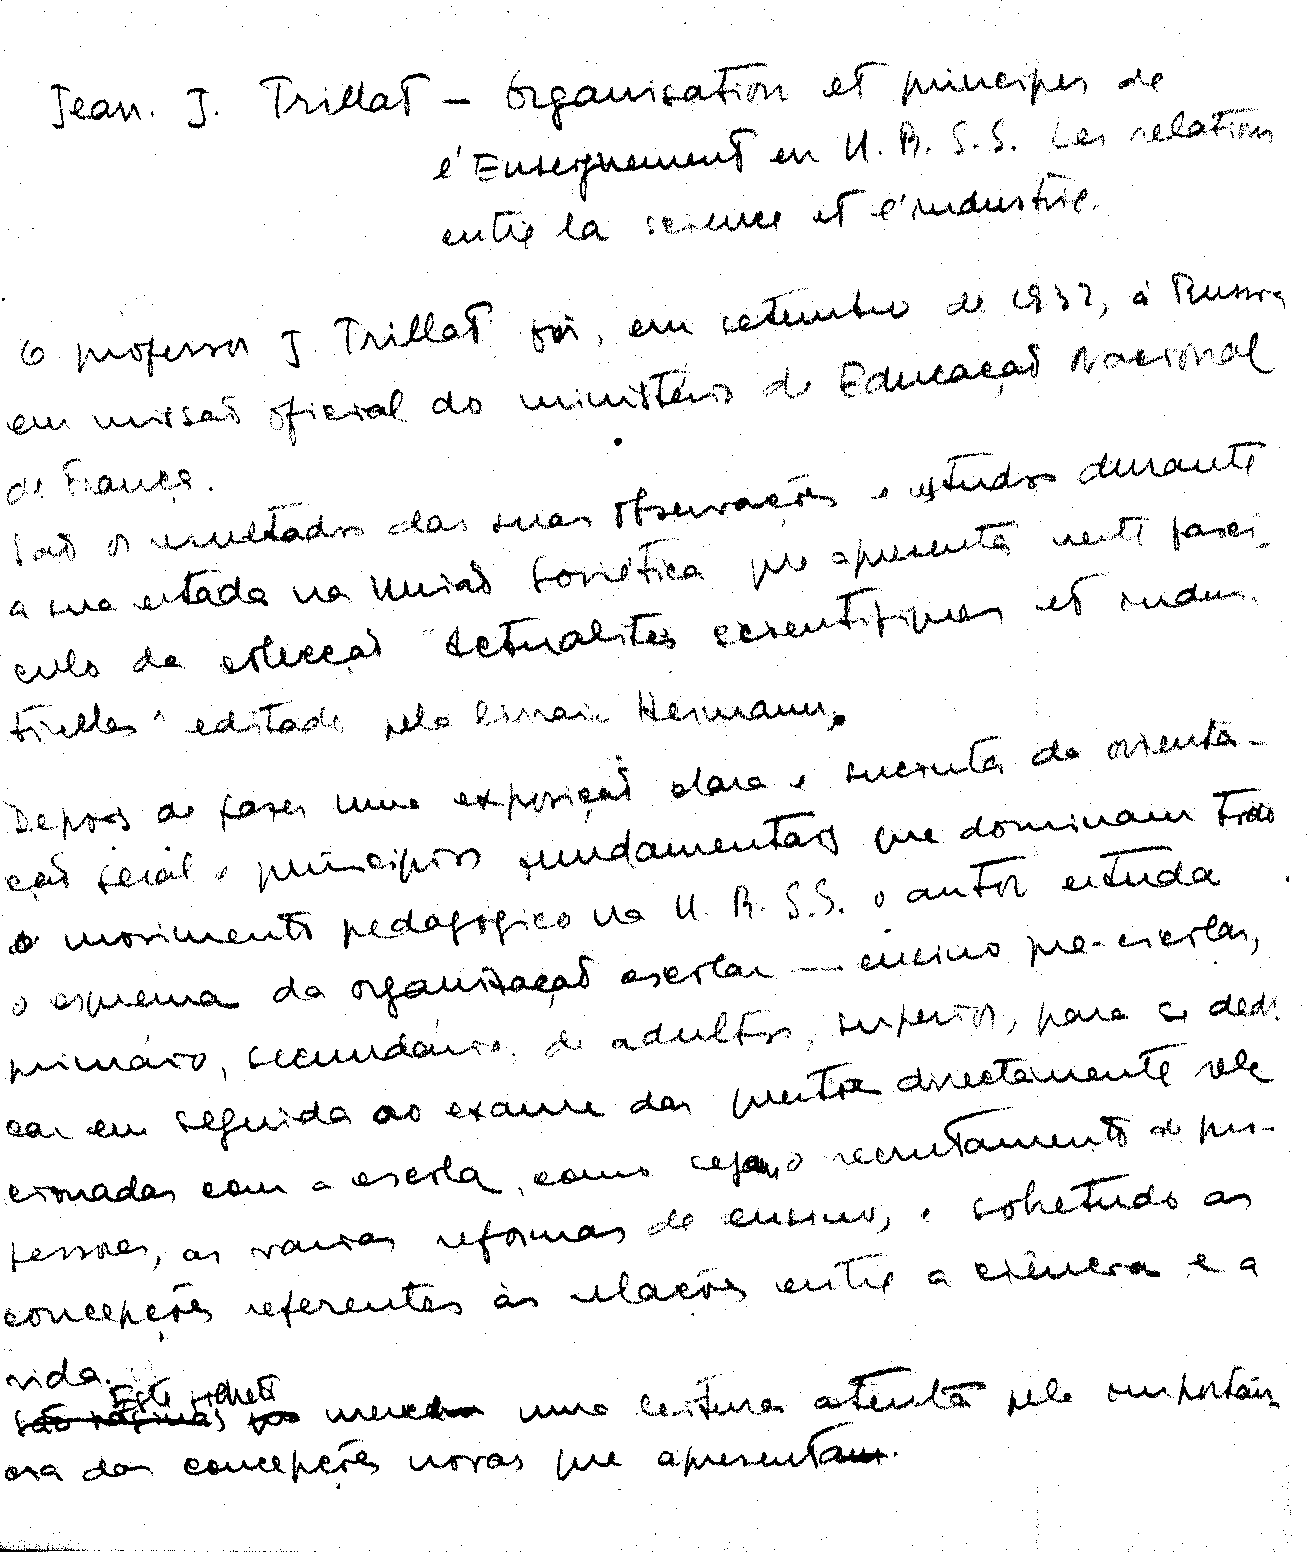 Jean. J. Trillat — Organisation et principes de
l'Enseignement en U. R. S. S. Les relations
entre la science et l'industrie.
O professor J Trillat foi, em setembro de 1932, à Russia
em missão oficial do ministério da Educação Nacional
de França.
São os resultados das suas observações e estudos durante
a sua estada na União Soviética que apresenta neste fasci-
culo da colecção "Actualités scientifiques et indus-
trielles" editado pela livraria Hermann.
Depois de fazer uma exposição clara e sucinta da orienta-
ção geral e princípios fundamentais que dominam todo
o movimento pedagógico na U. R. S. S. o autor estuda
o esquema da organização escolar — ensino pre-escolar,
primário, secundário, de adultos, superior, para se dedi
car em seguida ao exame das questões directamente rela
cionadas com a escola, como seja, o recrutamento de pro-
fessores, as varias reformas de ensino, e sobretudo as
concepções referentes às relações entre a ciência e a
vida.
Este folheto
São páginas que merece uma leitura atenta pela importân
cia das concepções novas que apresenta.